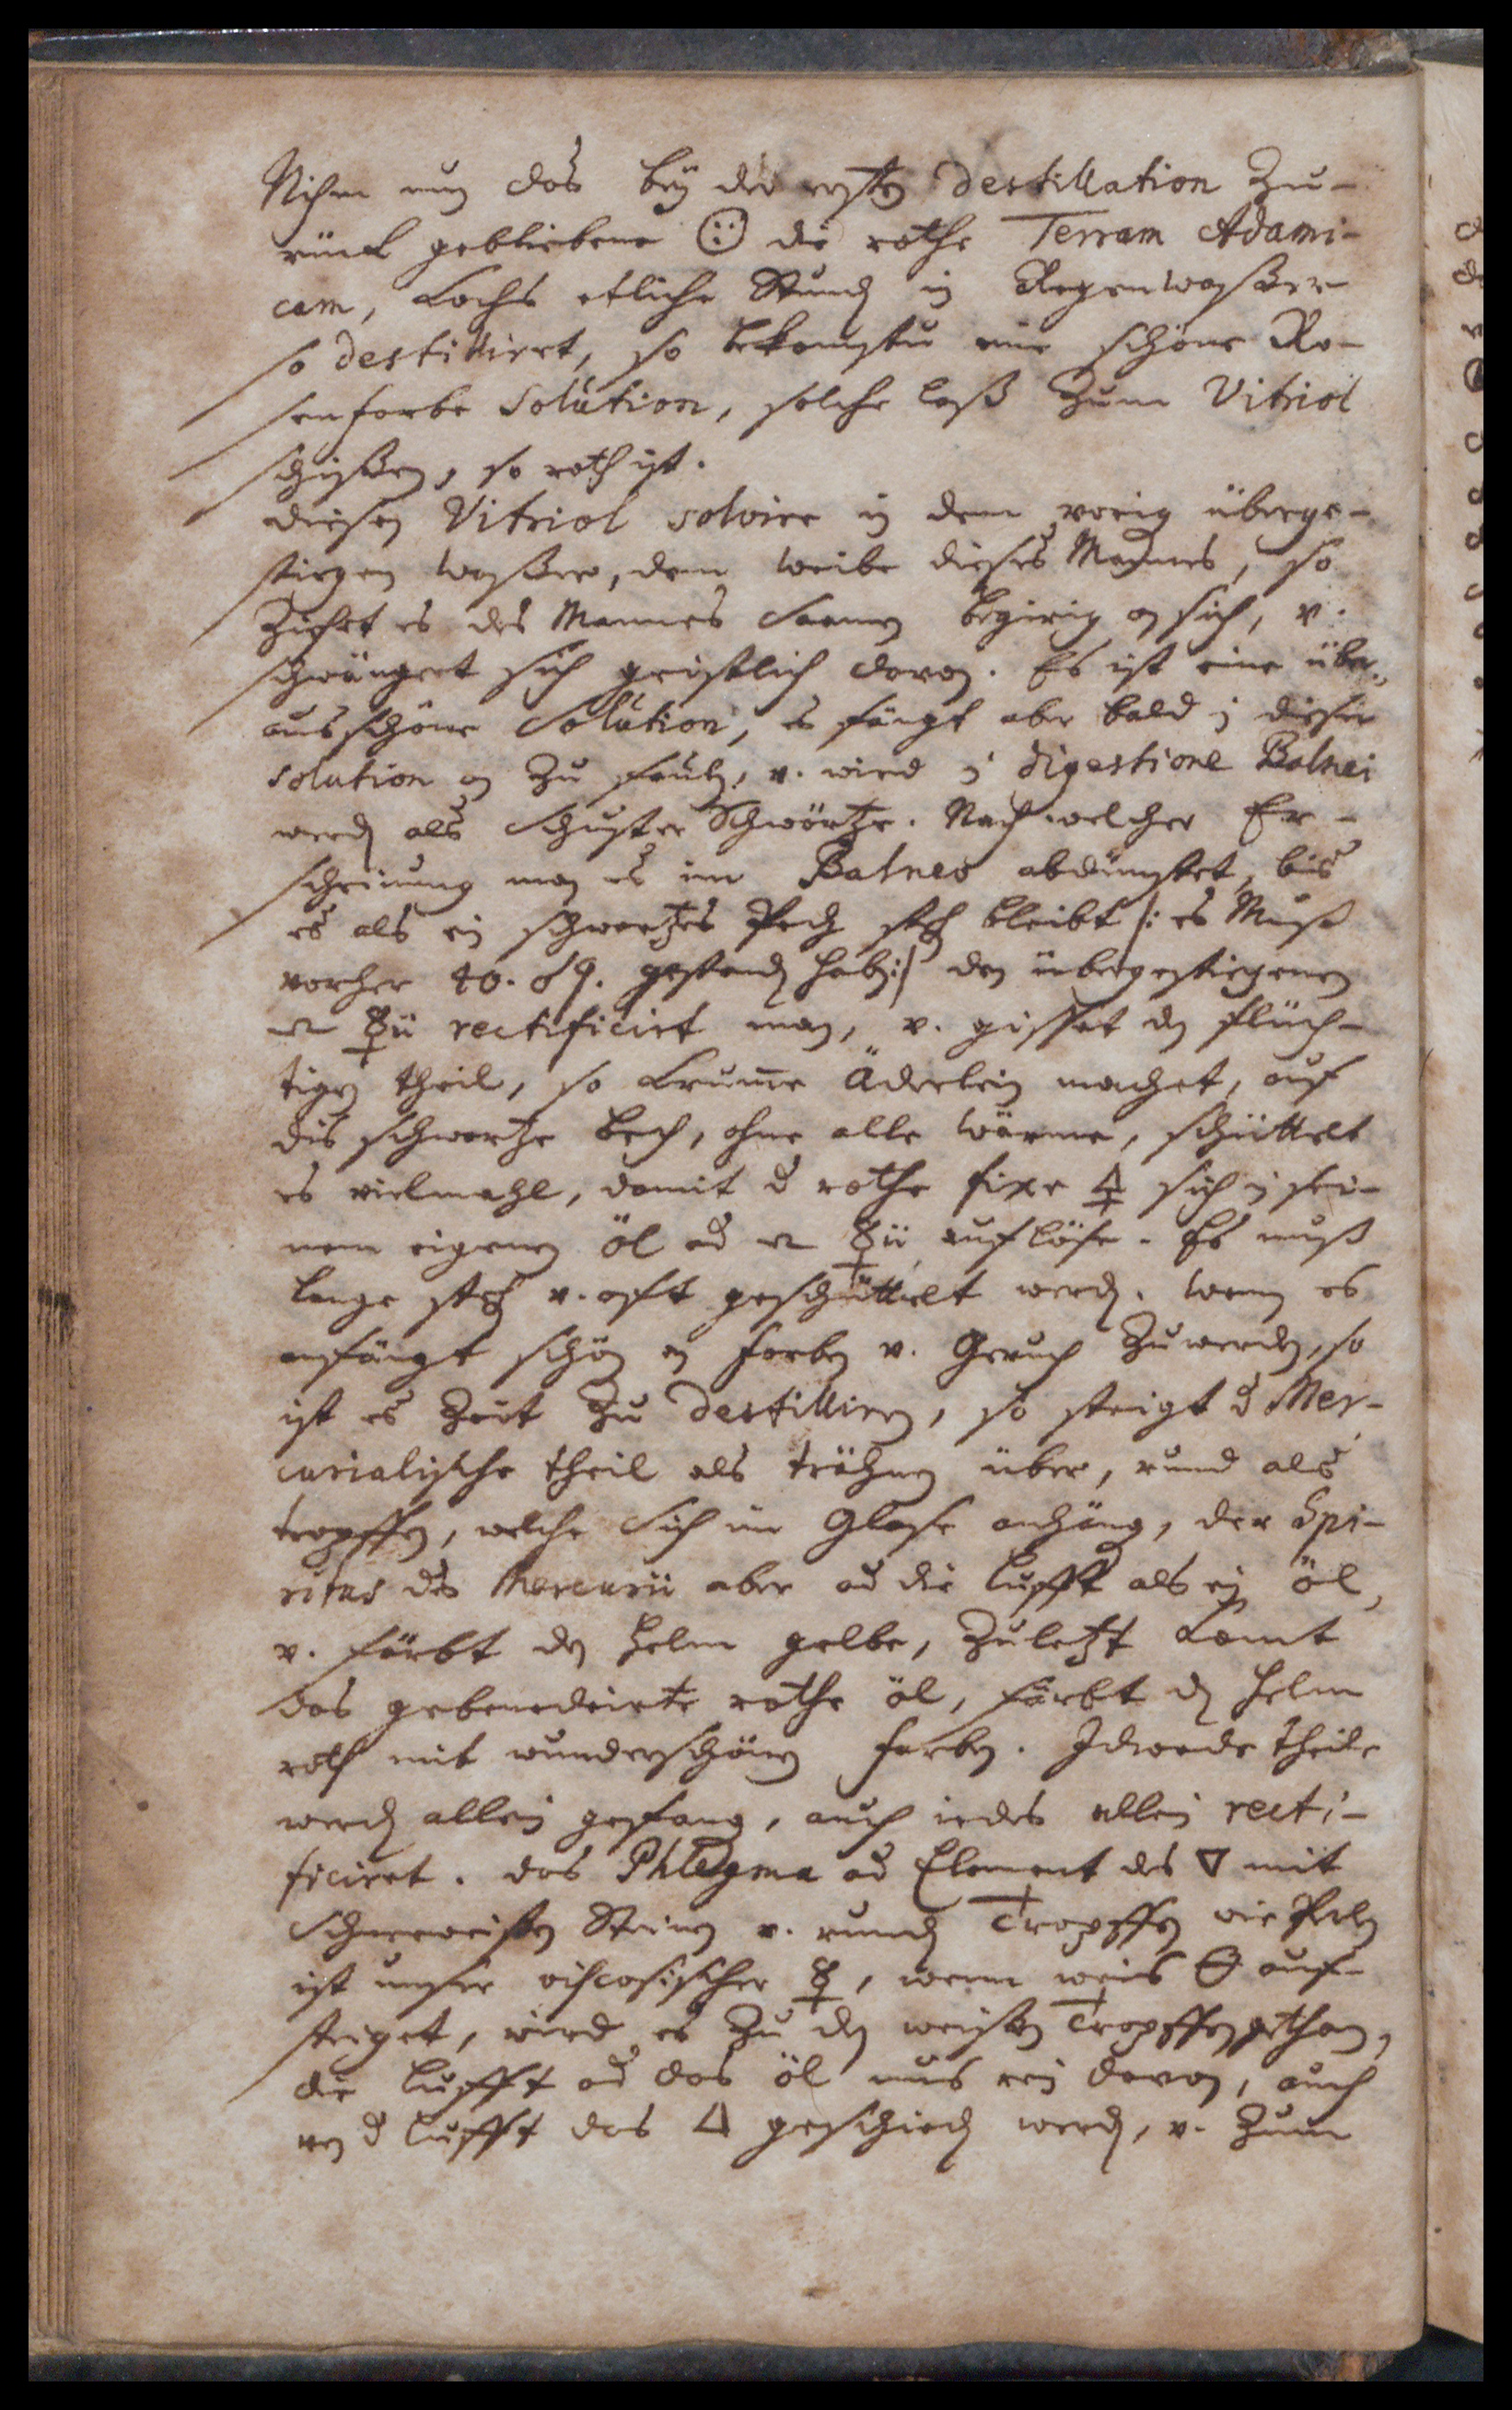 Nihm nun das bey der ersten Destillation Zu-
rück gebliebene die rothe Terram Adami-
cam, kochs etliche Stund in Regenwaßer
so destilliret, so bekomstu eine schöne Ro-
senfarbe Solution, solche laß Zum Vitriol
schießen, so roth ist.
diesen Vitriol solvire in dem vorig überge-
stiegen waßer, dem weibe dieses Mannes, so
Ziehet es des Mannes Saamen begirig an sich, v.
schwängert sich geistlich davon. Es ist eine über
aus schöne Solution, es fängt aber bald in dieser
solution an Zu faulen, v. wird in digestione Balnei
werden als Schuster Schwärtze. Nach welcher Er-
scheinung man es im Balneo abdunstet, bis
es als ein schwartzes Pech stehen bleibt /: es Muß
vorher 40. gestanden haben :/ den übergestiegenen
☿ii rectificirt man, v. gisset den flüch-
tigen theil, so krumme Äderlein machet, auf
dis schwartze bech, ohne alle wärme, schüttelt
es vielmahl, damit d rothe fixe 🜍 sich in sei-
nem eigenen öl ☿ii auflöse. Es muß
lange stehen v. offt geschüttelt werden. wenn es
anfängt schön an farben v. Geruch Zu werden, so
ist es Zeit Zu destilliren, so steigt d Mer-
curialische theil als trähnen über, rund als
tropffen, welche sich im Glase anhäng, der Spi-
ritus des Mercurii aber od die Lufft als ein öl,
v. färbt den Helm gelbe, Zuletzt komt
das gebenedeiete rothe öl, färbt den Helm
roth mit wunderschönen farben. Idwede theile
werden allein gefang, auch iedes allein recti-
ficiret. das Phlegma od Element des ▽ mit
Schneeweißen Steinen v. runden Tropffen wie Perlen
ist unser viscosischer ☿, wenn weis auf-
steiget, wird es Zu den weißen Tropffen gethan,
die Lufft od das öl mus rein davon, auch
von d Lufft das △ geschieden werden, v. Zum